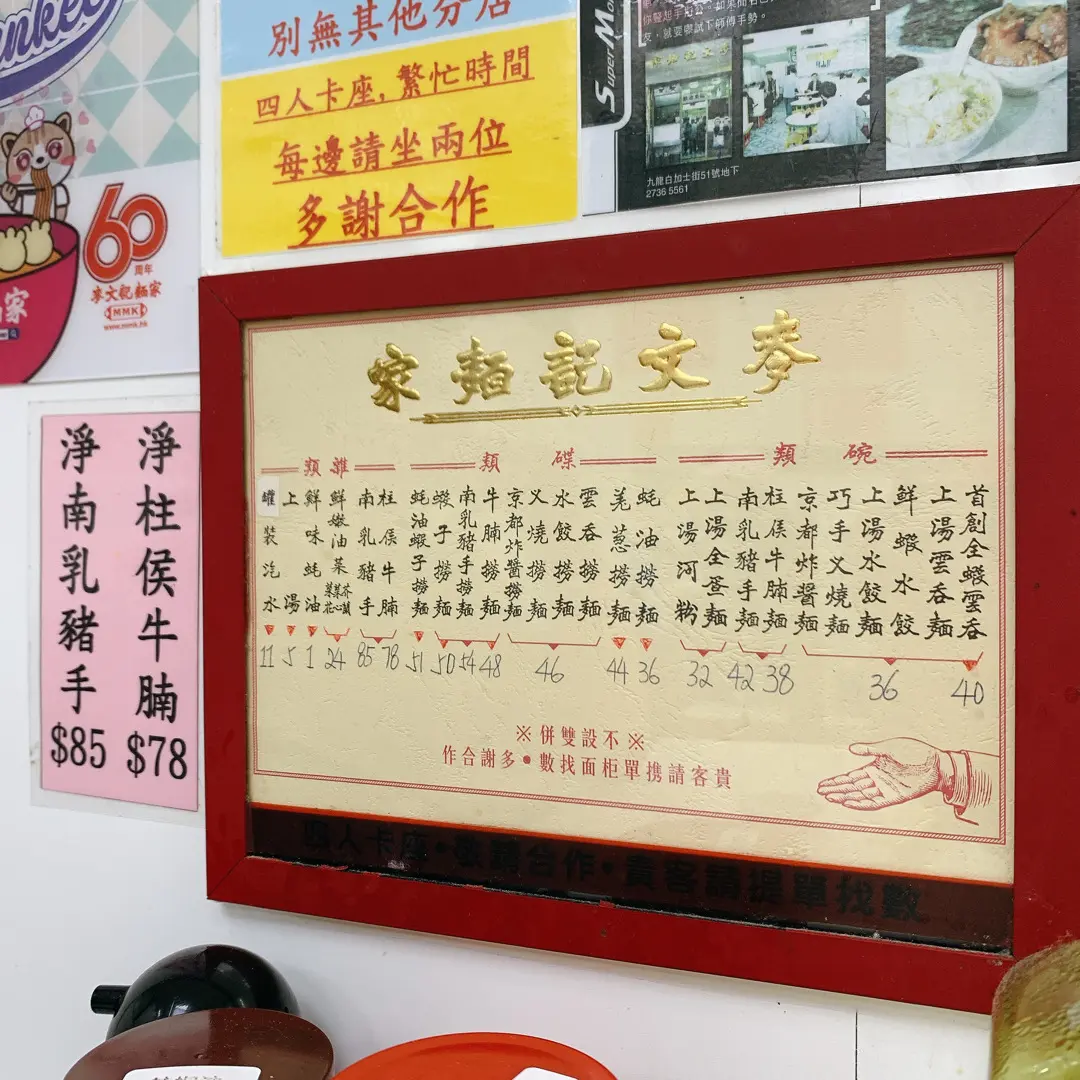 別無其他分店
四人卡座，繁忙時間
每邊請坐兩位
多謝合作
SUPER
九龍白加士街51號地下
2736 5561
60
周年
麥文記麵家
MMK
www.mmk.hk
淨柱侯牛腩
$78
淨南乳豬手
$85
麥文記麵家
碗類
首創全蝦雲吞
40
上湯雲吞麵
鮮蝦水餃
上湯水餃麵
巧手义燒麵
京都炸醬麵
36
柱侯牛腩麵
38
南乳豬手麵
42
上湯全蛋麵
上湯河粉
32
碟類
蚝油撈麵
36
羗葱撈麵
44
雲吞撈麵
水餃撈麵
义燒撈麵
京都炸醬撈麵
46
牛腩撈麵
48
南乳豬手撈麵
54
蝦子撈麵
50
蚝油蝦子撈麵
51
雜類
柱侯牛腩
78
南乳豬手
85
鮮嫩油菜
24
鮮味蚝油
1
上湯
5
罐裝汽水
11
※不設雙併※
貴客請携單柜面找數•多謝合作
四人卡座•敬請合作•貴客請提單找數